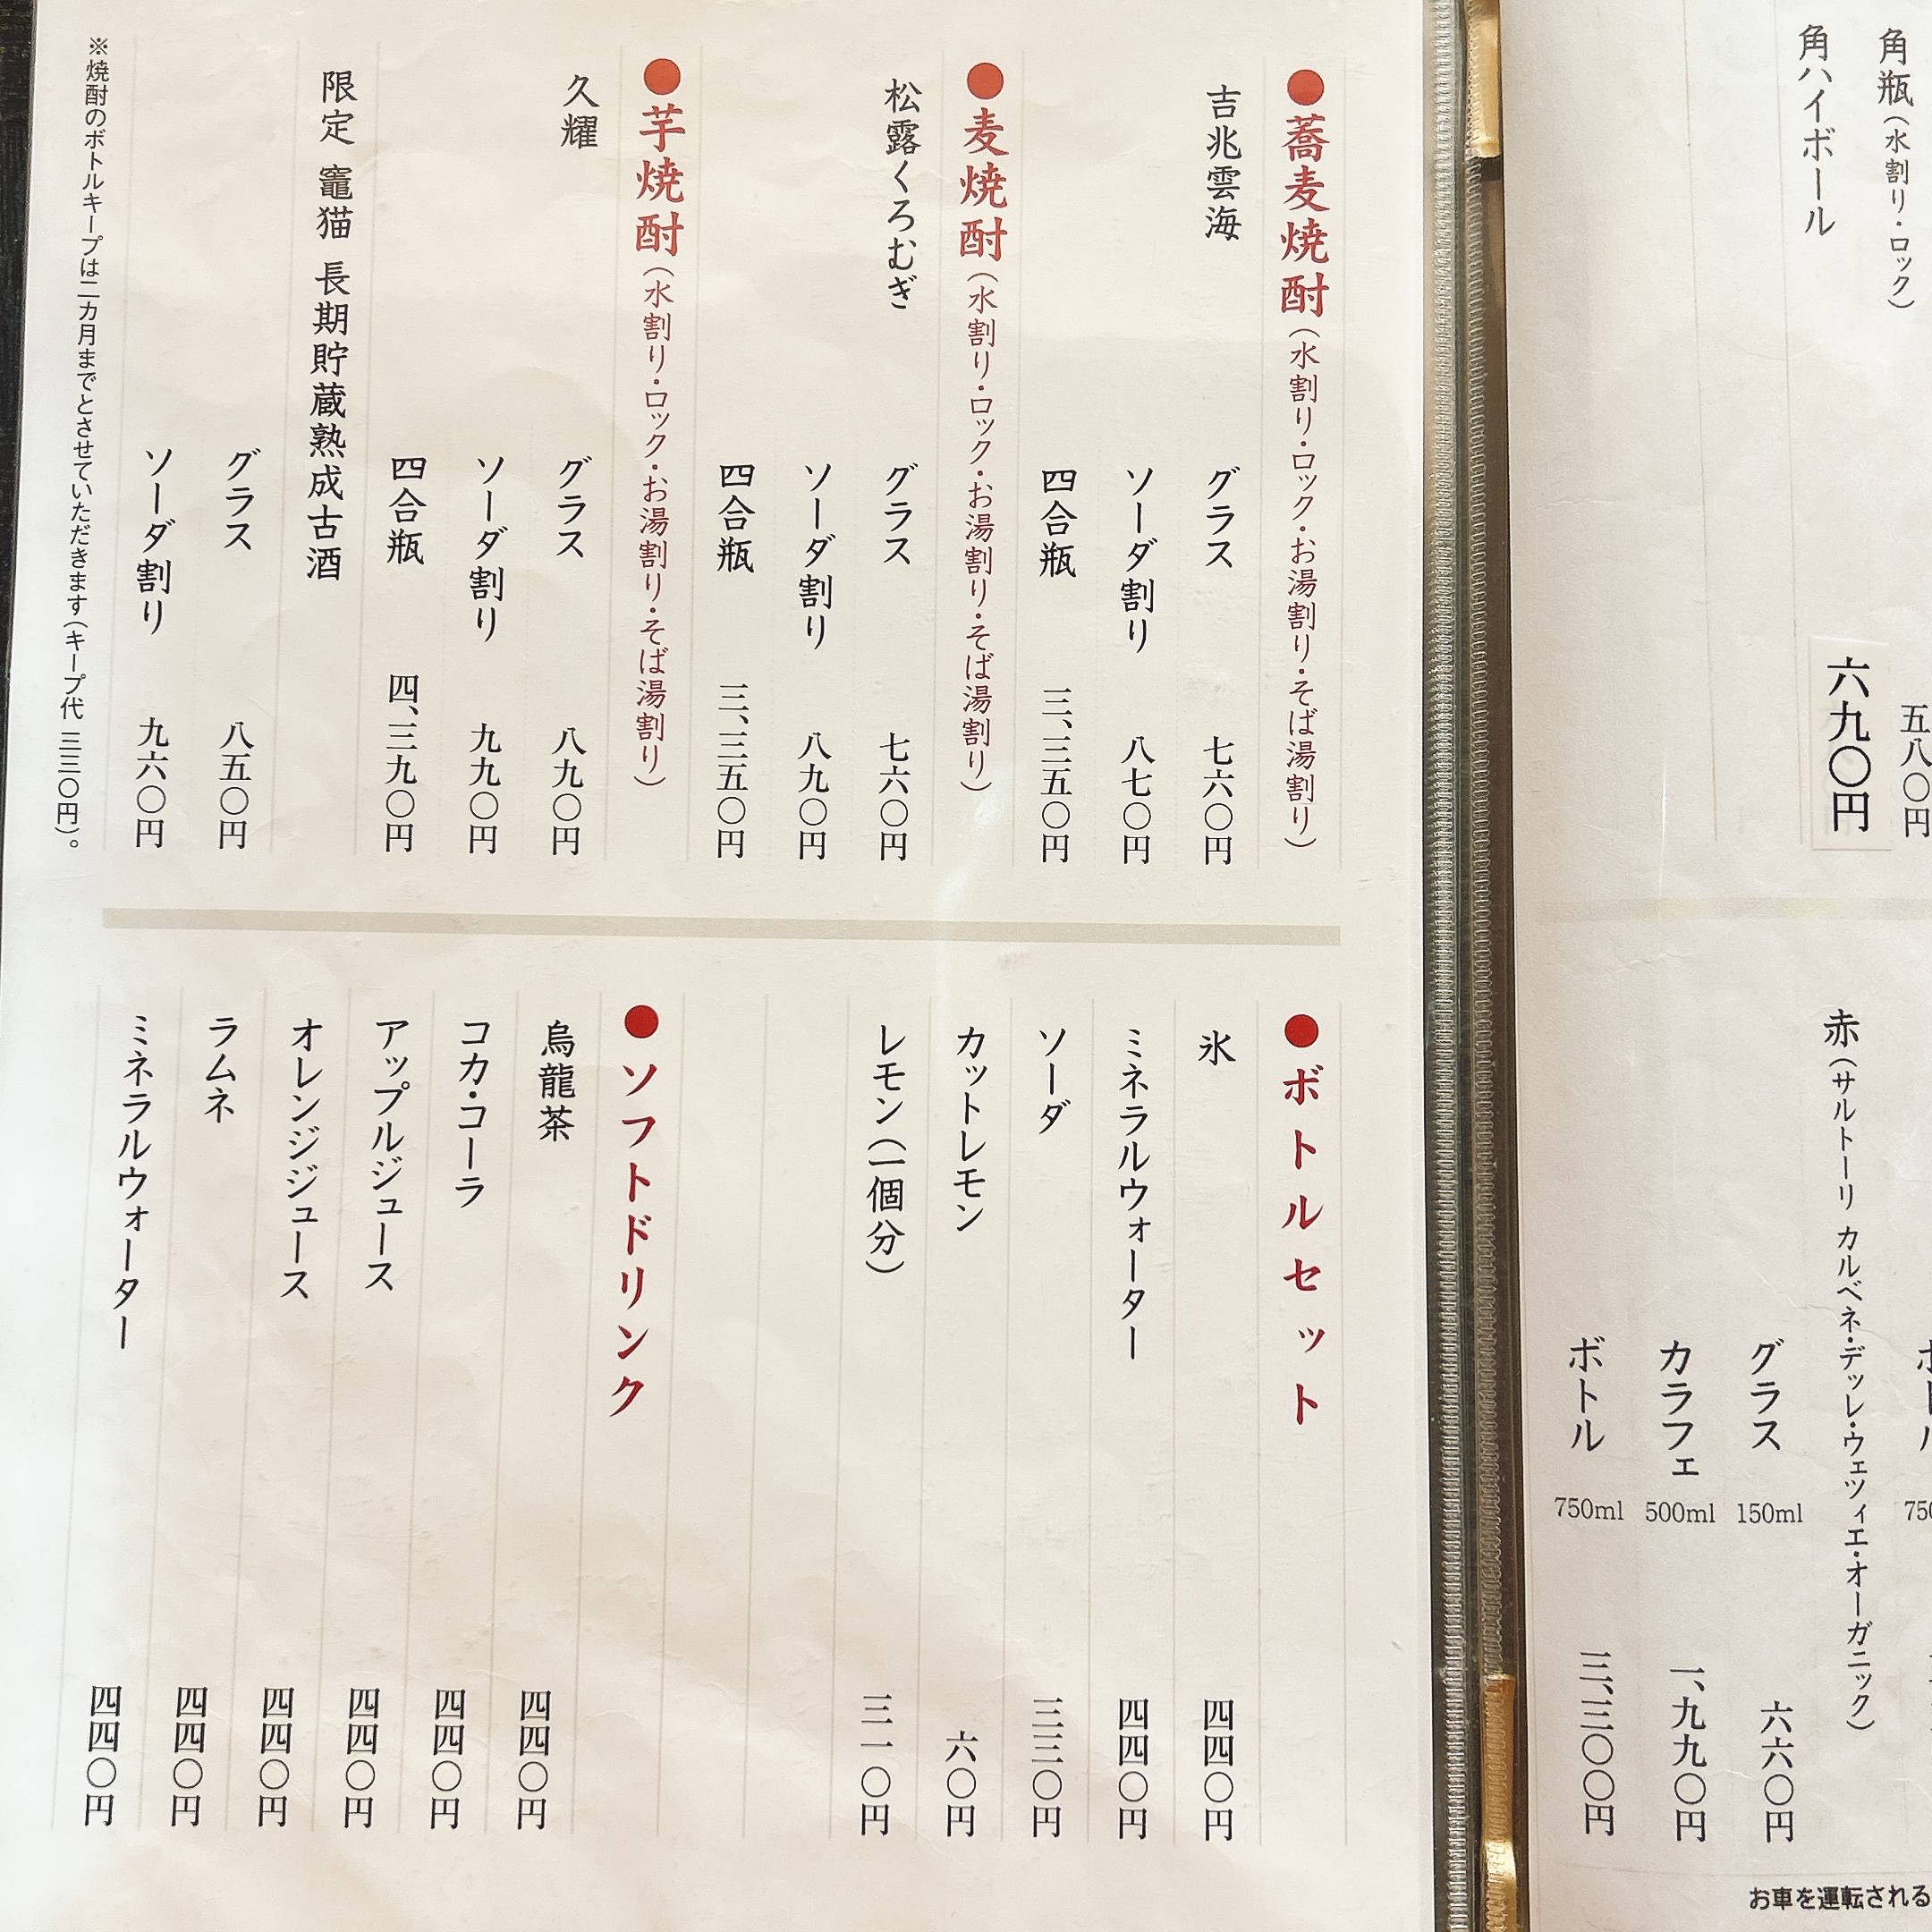 角瓶（水割り・ロック） 五八〇円
角ハイボール 六九〇円
赤（サルトーリ カルベネ・デッレ・ウェツィエ・オーガニック）
グラス 150ml 六六〇円
カラフェ 500ml 一、九九〇円
ボトル 750ml 三、三〇〇円
お車を運転される
●蕎麦焼酎（水割り・ロック・お湯割り・そば湯割り）
吉兆雲海 グラス 七六〇円
ソーダ割り 八七〇円
四合瓶 三、三五〇円
●麦焼酎（水割り・ロック・お湯割り・そば湯割り）
松露くろむぎ グラス 七六〇円
ソーダ割り 八九〇円
四合瓶 三、三五〇円
●芋焼酎（水割り・ロック・お湯割り・そば湯割り）
久耀 グラス 八九〇円
ソーダ割り 九九〇円
四合瓶 四、三九〇円
限定 竈猫 長期貯蔵熟成古酒
グラス 八五〇円
ソーダ割り 九六〇円
※焼酎のボトルキープは二カ月までとさせていただきます（キープ代 三三〇円）。
●ボトルセット
氷 四四〇円
ミネラルウォーター 四四〇円
ソーダ 三三〇円
カットレモン 六〇円
レモン（一個分） 三一〇円
●ソフトドリンク
烏龍茶 四四〇円
コカ・コーラ 四四〇円
アップルジュース 四四〇円
オレンジジュース 四四〇円
ラムネ 四四〇円
ミネラルウォーター 四四〇円